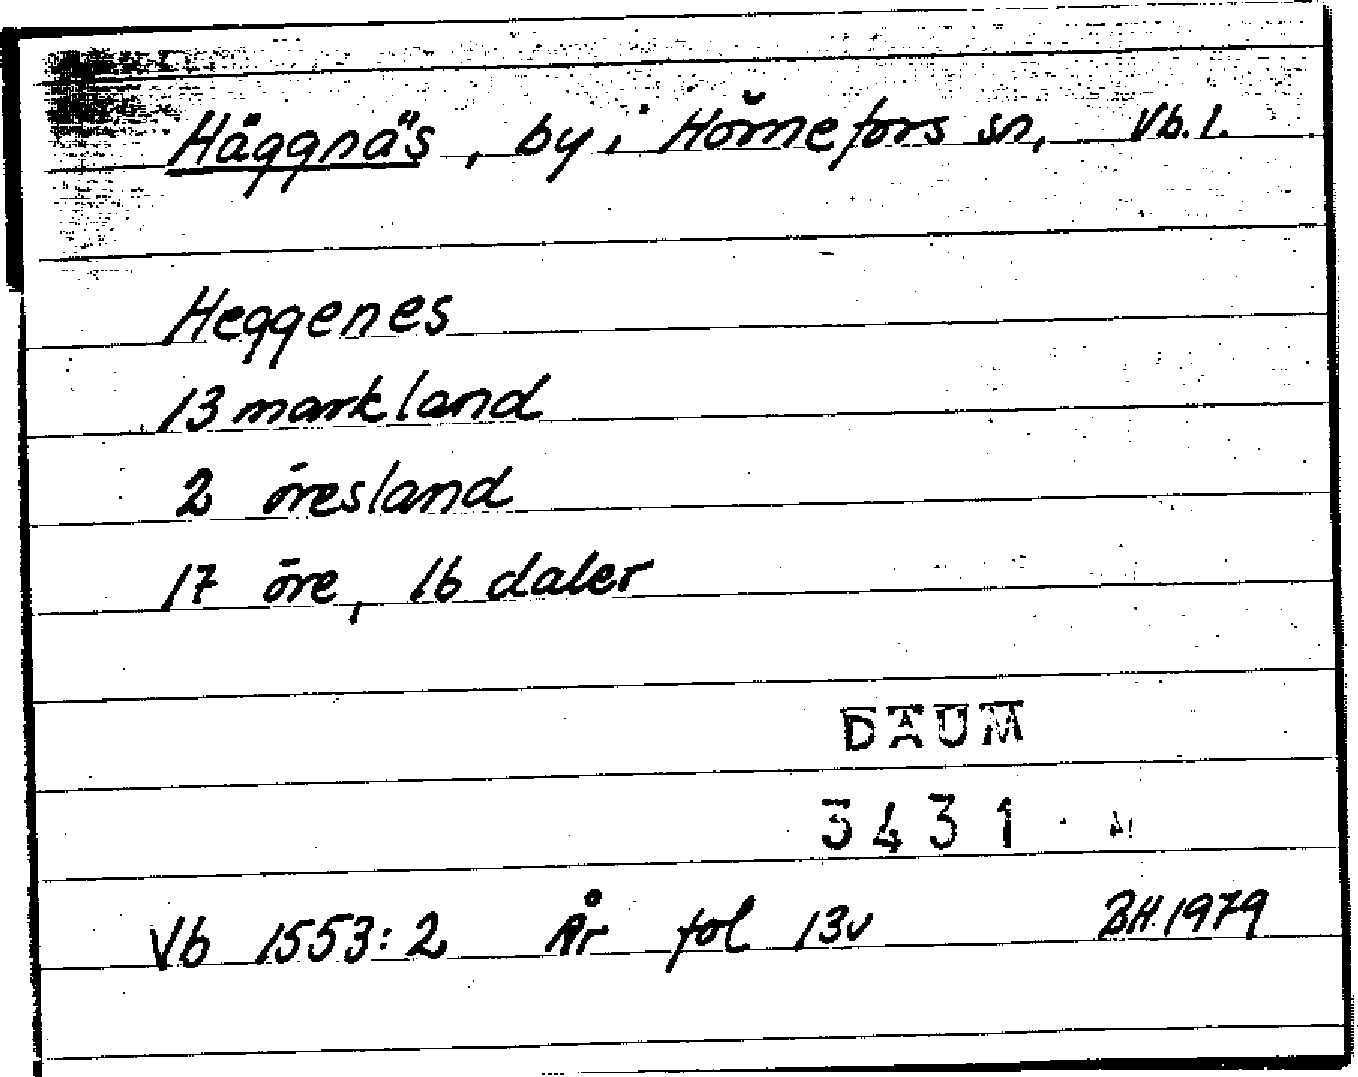 Häggnäs, by i Hörnefors sn, Vb. l.
Heggenes
13 markland
2 öresland
17 öre, 16 daler
DAUM
3431
Vb 1553:2 År fol 13v BH.1979